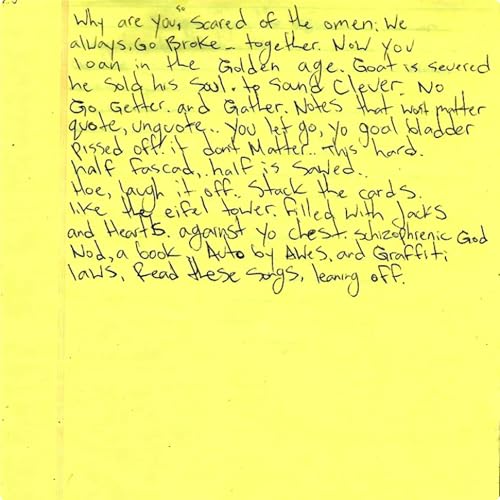 Why are you, so scared of the omen; We
always. Go Broke - together. Now you
loan in the Golden age. Goat is severed
he sold his soul. to sound Clever. No
Go, Getter. and Gather. Notes that wont matter
quote, unquote.. you let go, yo goal bladder
pissed off. it dont Matter.. This hard.
half fascad,. half is sawed..
Hoe, laugh it off. Stack the cards.
like the eifel tower. filled with Jacks
and Hearts. against yo chest. schizophrenic God
Nod, a book, Auto by Awes, and Graffiti
laws. Read these songs, leaning off.